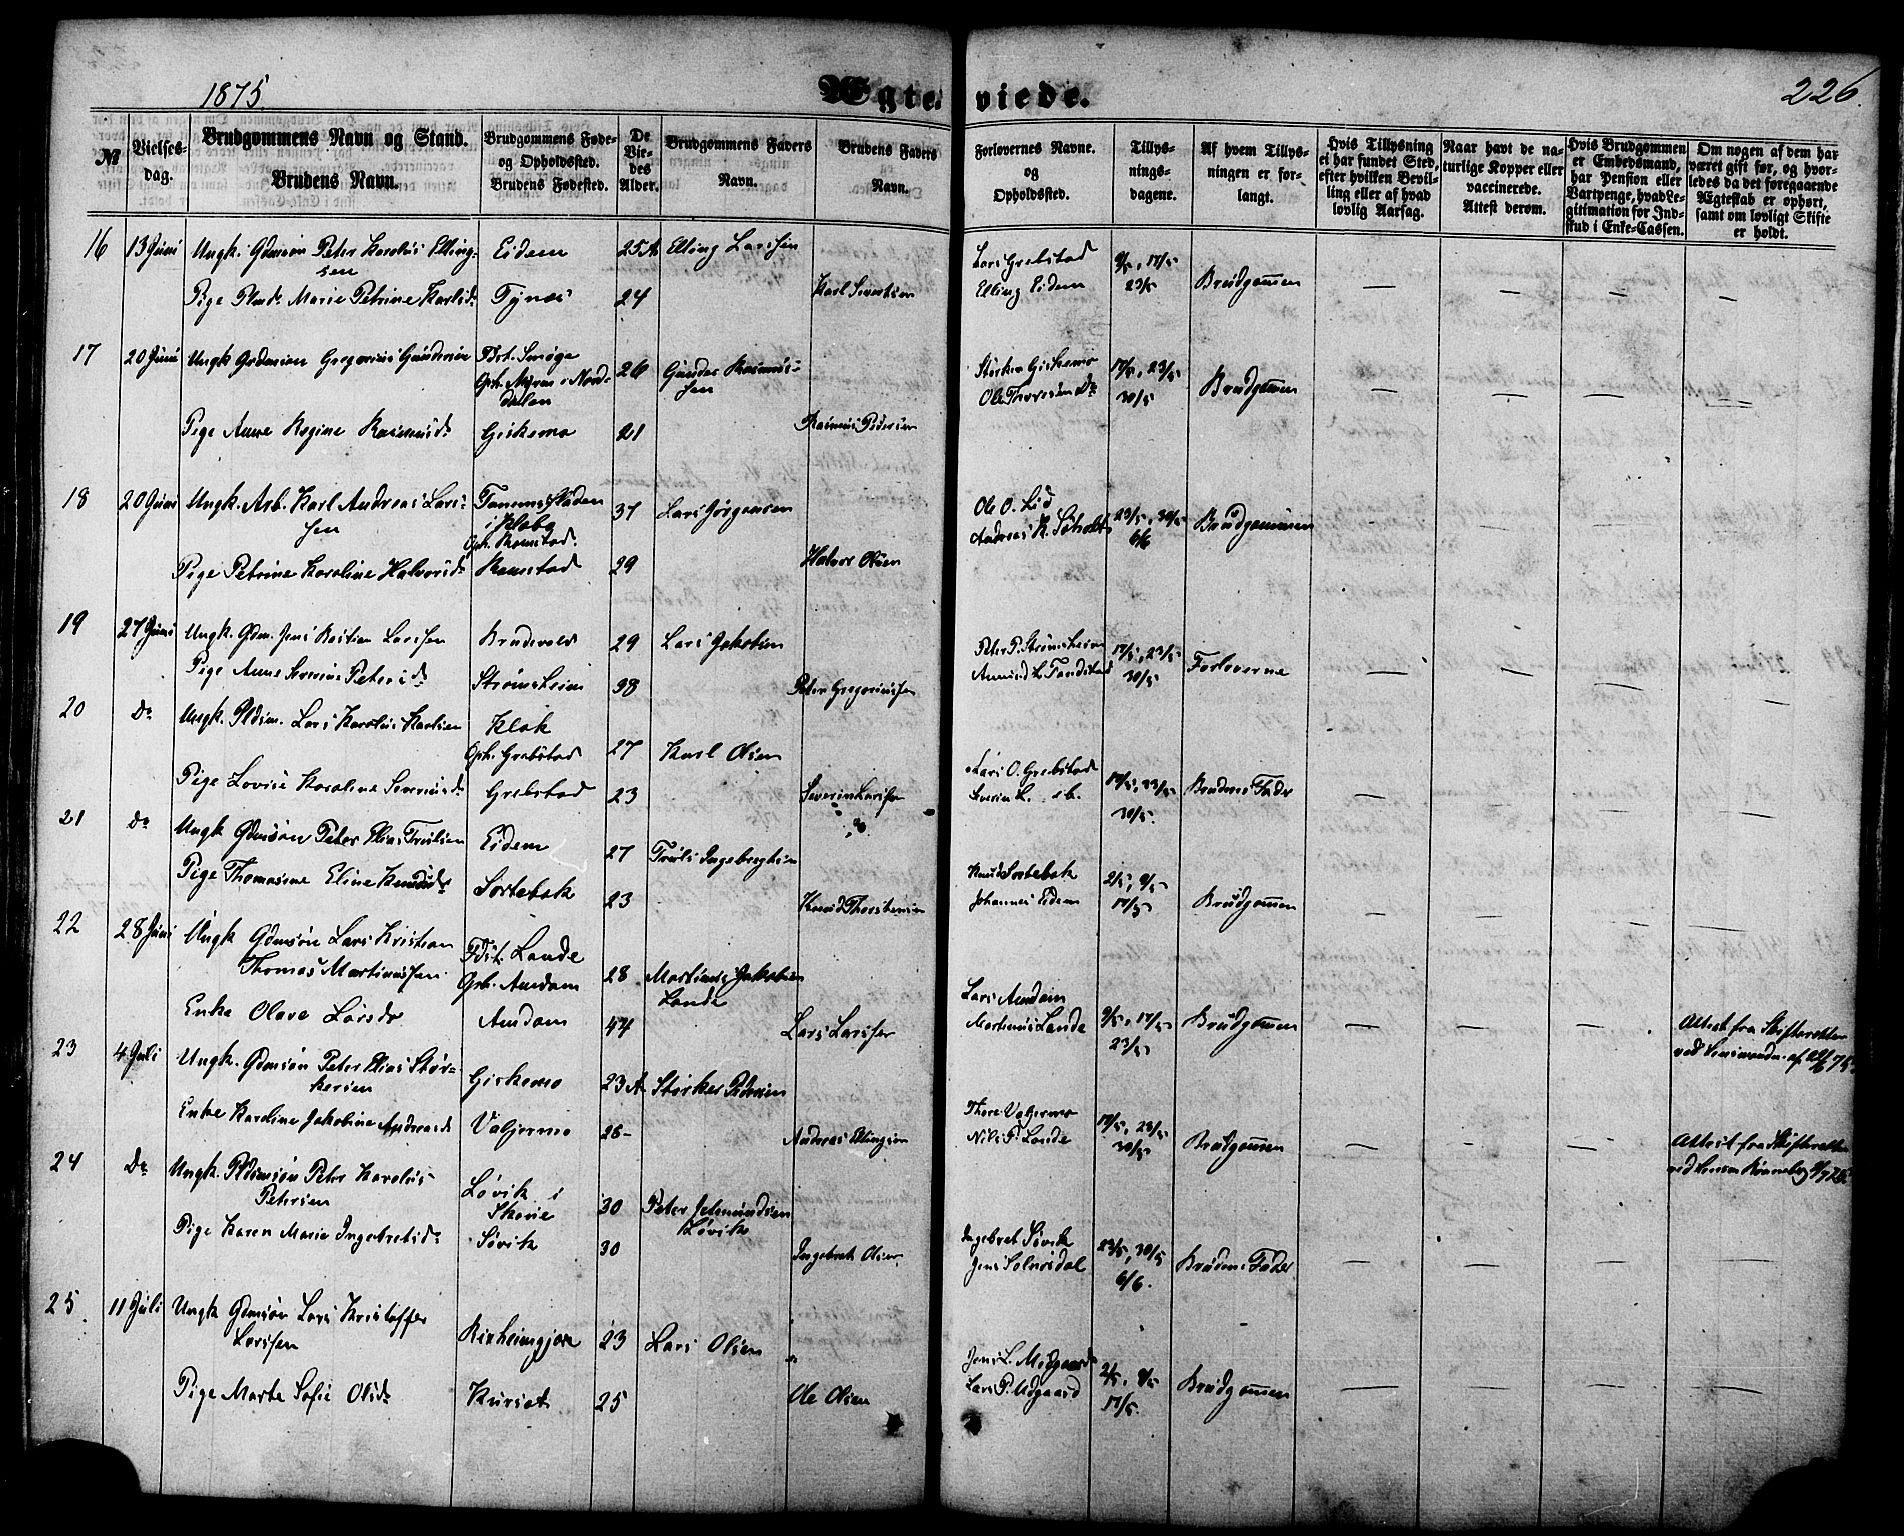 1875
Ægteviede.
226.
№
Vielses-
dag.
Brudgommens Navn og Stand.
Brudens Navn.
Brudgommens Føde-
og Opholdssted.
Brudens Fødested.
De
Vie-
des
Alder.
Brudgommens Faders
Navn.
Brudens Faders
Navn.
Forlovernes Navne.
og
Opholdssted.
Tillys-
nings-
dagene.
Af hvem Tillys-
ningen er for-
langt.
Hvis Tillysning
ei har fundet Sted,
efter hvilken Bevil-
ling eller af hvad
lovlig Aarsag.
Naar havt de na-
turlige Kopper eller
vaccinerede.
Attest derom.
Hvis Brudgommen
er Embedsmand,
har Pension eller
Vartpenge, hvad Le-
gitimation for Ind-
skud i Enke-Cassen.
Om nogen af dem har
været gift før, og hvor-
ledes da det foregaaende
Ægteskab er ophørt,
samt om lovligt Skifte
er holdt.
16 13 Juni Ungk. Gdmsøn Peter Karolus Elling-
sen Eidem 25 Elling Larssen
Pige Marie Petrine Karlsd. Tynes 24 Karl Sivertsen
Lars Grebstad 9/5, 17/5
Elling Eidem 23/5 Brudgommen
17 20 Juni Ungk Gregorius Gundersen 26 Gunder Rasmus-
sen
Pige Anne Regine Rasmusd. Giskemo 21 Rasmus Pedersen
Størker Giskemo 17/5, 23/5
Ole Thoresen Do 30/5 Brudgommen
18 20 Juni Ungk. Arb. Karl Andreas Lars-
sen 37 Lars Jørgensen
Pige Petrine Karoline Halvorsd. Ramstad 29 Halvor Olsen
Ole O. Lid 23/5, 30/5
Andreas K. Søholt 6/6 Brudgommen
19 27 Juni Ungk. Gdm. Jens Bastian Larssen Brudevold 29 Lars Jakobsen
Pige Anne Severine Petersd. Strømsheim 38 Peter Gregoriussen
Peter P. Strømsheim 17/5, 23/5
30/5 Forloverne
20 Do Ungk. Pldsm. Lars Karolus Karlsen Klok
Oph. Grebstad 27 Karl Olsen
Pige Lovise Karoline Severinsd. Grebstad 23 Severin Larssen
Lars O. Grebstad 17/5, 23/5
Severin L. 30/5 Brudens Fader
21 Do Ungk Gdmsøn Peter Elias Trulsen Eidem 27 Truls Ingebregtsen
Pige Thomasine Eline Knudsd. Sortebak 23 Knud Thorstensen
Knud Sortebak 2/5, 9/5
Johannes Eidem 17/5 Brudgommen
22 28 Juni Ungk Gdmsøn Lars Kristian
Thomas Martinussen Fdst. Lande
Oph. Amdam 28 Martinus Jakobsen
Lande
Enke Olave Larsdr Amdam 44 Lars Larssen
Lars Amdam
Martinus Lande 9/5, 17/5
23/5 Brudgommen
Attest fra Skifteretten
23 4 Juli Ungk. Gdmsøn Peter Elias Stør-
kersen Giskemo 23 Størker Pedersen
Enke Karoline Jakobine Andreasd Valgermo 26 Andreas Ellingsen
Thore Valgermo 17/5, 23/5
Nils P. Lande 30/5 Brudgommen
Attest fra Skifteretten
24 Do Ungk. Pldsmsøn Peter Karolus
Petersen Løvik i
Skorie 30 Peter Jetmundsen
Løvik
Pige Karen Marie Ingebretsd. Søvik 30 Ingebret Olsen
Ingebret Søvik 23/5, 30/5
Jens Solnørdal 6/6. Brudens Fader
25 11 Juli Ungk Gdmsøn Lars Kristoffer
Larssen 23 Lars Olsen
Pige Marte Sofie Olsd. Kurset 25 Ole Olsen
Jens L. Midgaard 2/5, 9/5
Lars P. Udgaard 17/5. Brudgommen